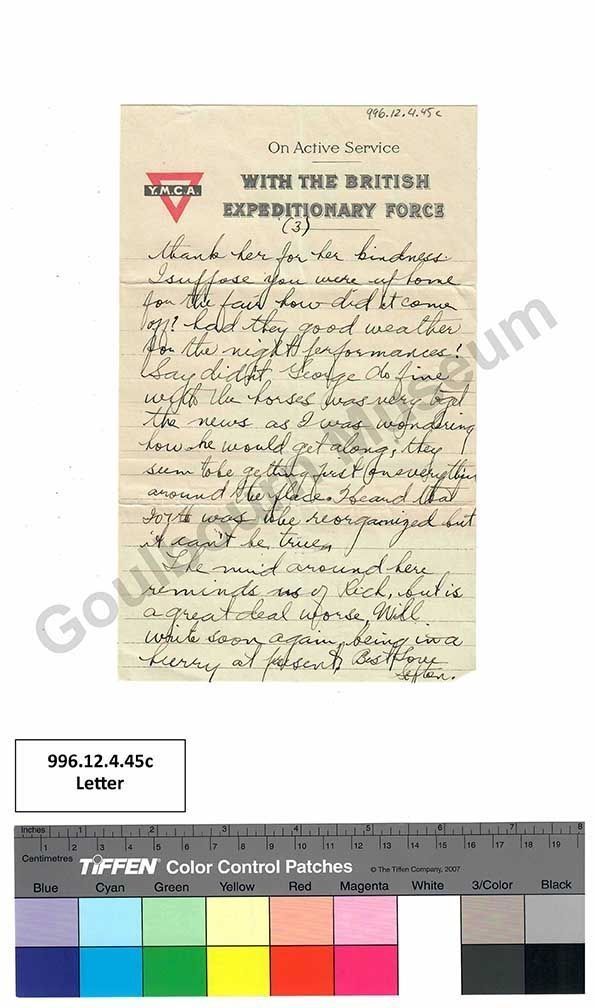 996.12.4.45c
On Active Service
Y.M.C.A.
WITH THE BRITISH
EXPEDITIONARY FORCE
(3)
thank her for her kindness.
I suppose you were up home
for the fair how did it come
off? had they good weather
for the night performances?
Say didn't George do fine
with the horses was very glad
the news as I was wondering
how he would get along, they
seem to be getting first on everything
around the place. Heard that
was to be reorganized but
it can't be true.
The mud around here
reminds us of Rich, but is
a great deal worse, Will
write soon again, being in a
hurry at present. Best Love
Sefton.
Goulbourn Museum
996.12.4.45c
Letter
Inches 1 2 3 4 5 6 7 8
Centimetres 1 2 3 4 5 6 7 8 9 10 11 12 13 14 15 16 17 18 19
TIFFEN Color Control Patches © The Tiffen Company, 2007
Blue Cyan Green Yellow Red Magenta White 3/Color Black